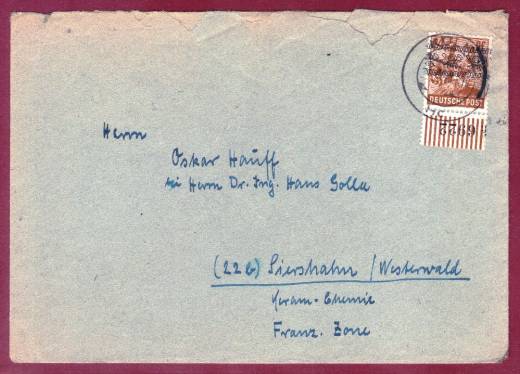 DEUTSCHE POST
Herrn
Oskar Hauff
bei Herrn Dr. Ing. Hans Golla
(22b) Siershahn / Westerwald
Keram-Chemie
Franz. Zone